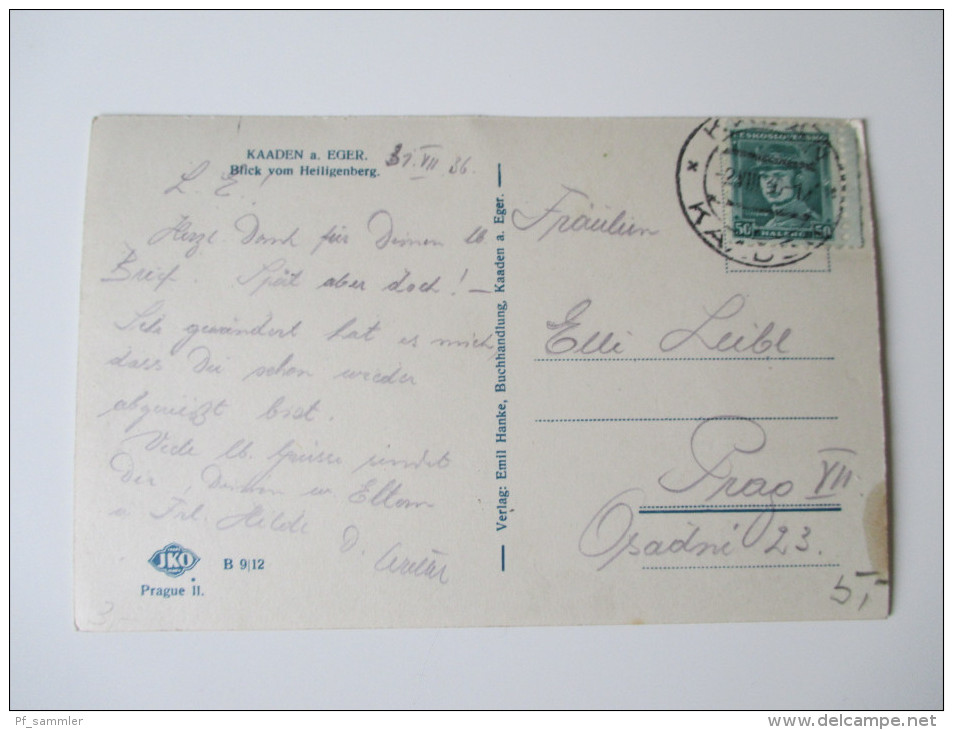 KAADEN a. EGER.
Blick vom Heiligenberg.
31. VII 36.
L. E.!
Herzl. Dank für Deinen lb.
Brief. Spät aber doch! —
gewundert hat es mich,
dass Du schon wieder
abgereist bist.
Viele lb. Grüsse sendet
Dir, Deinen w. Eltern
u. Frl. Hilde D.
JKO
B 9|12
Prague II.
3,-
Verlag: Emil Hanke, Buchhandlung, Kaaden a. Eger.
ČESKOSLOVENSKO
50 HALÉŘŮ 50
Fräulein
Elli Leibl
Prag VII
Osadní 23.
5,-
Pf_sammler
www.delcampe.net